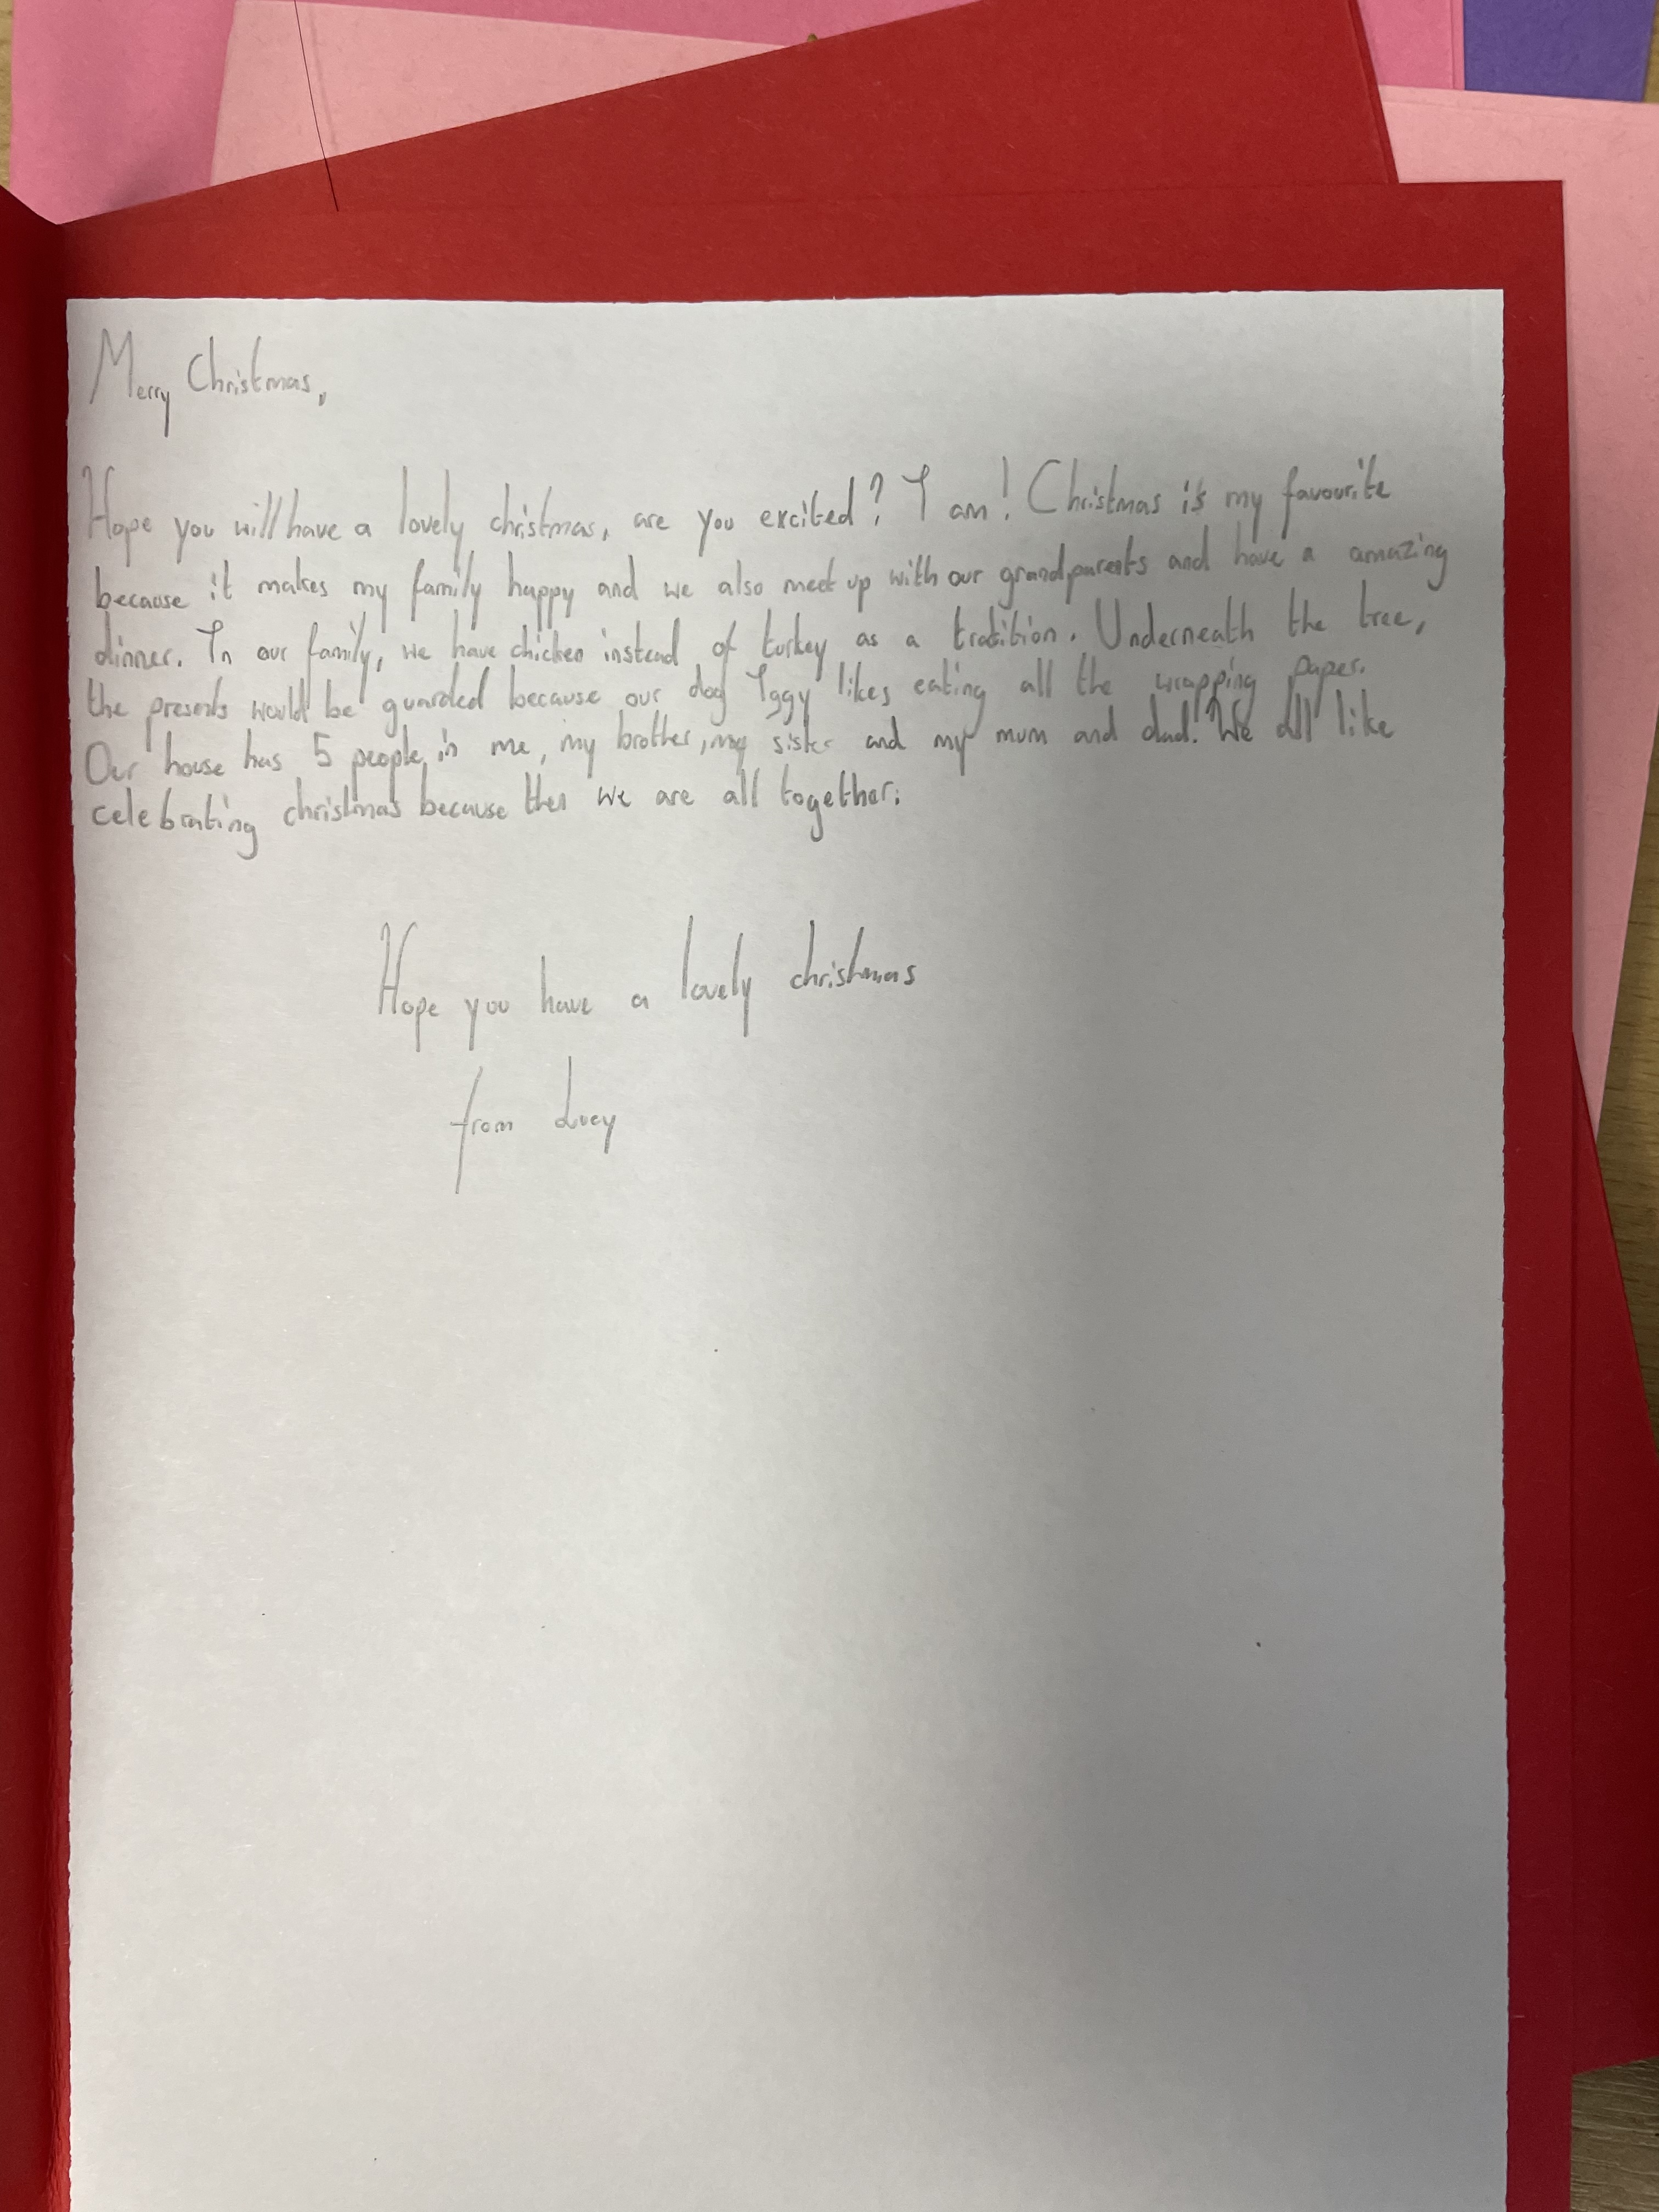 Merry Christmas,
Hope you will have a lovely christmas, are you excited? I am! Christmas is my favourite
because it makes my family happy and we also meet up with our grandparents and have a amazing
dinner. In our family, we have chicken instead of turkey as a tradition. Underneath the tree,
the presents would be guarded because our dog Iggy likes eating all the wrapping paper.
Our house has 5 people in me, my brother, my sister and my mum and dad. We all like
celebrating christmas because then we are all together.
Hope you have a lovely christmas
from Lucy